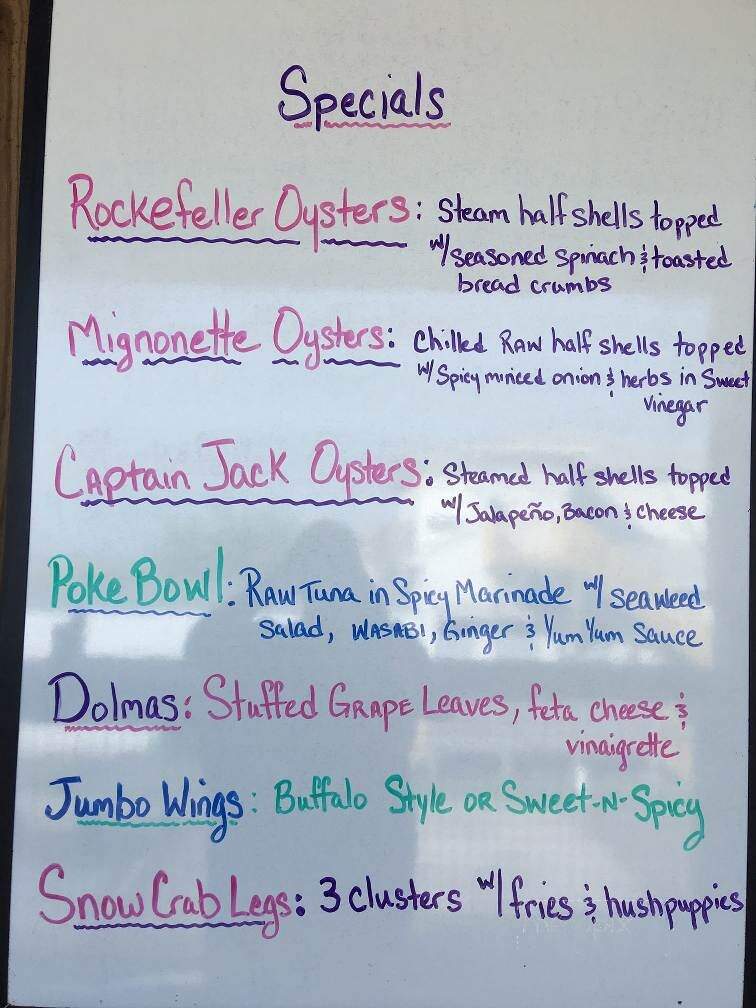 Specials
Rockefeller Oysters: Steam half shells topped
w/ seasoned spinach & toasted
bread crumbs
Mignonette Oysters: Chilled RAW half shells topped
w/ Spicy minced onion & herbs in Sweet
Vinegar
Captain Jack Oysters: Steamed half shells topped
w/ Jalapeño, Bacon & Cheese
Poke Bowl: RAW Tuna in Spicy Marinade w/ seaweed
Salad, WASABI, Ginger & Yum Yum Sauce
Dolmas: Stuffed GRAPE Leaves, feta cheese &
vinaigrette
Jumbo Wings: Buffalo Style OR Sweet-N-Spicy
Snow Crab Legs: 3 clusters w/ fries & hushpuppies